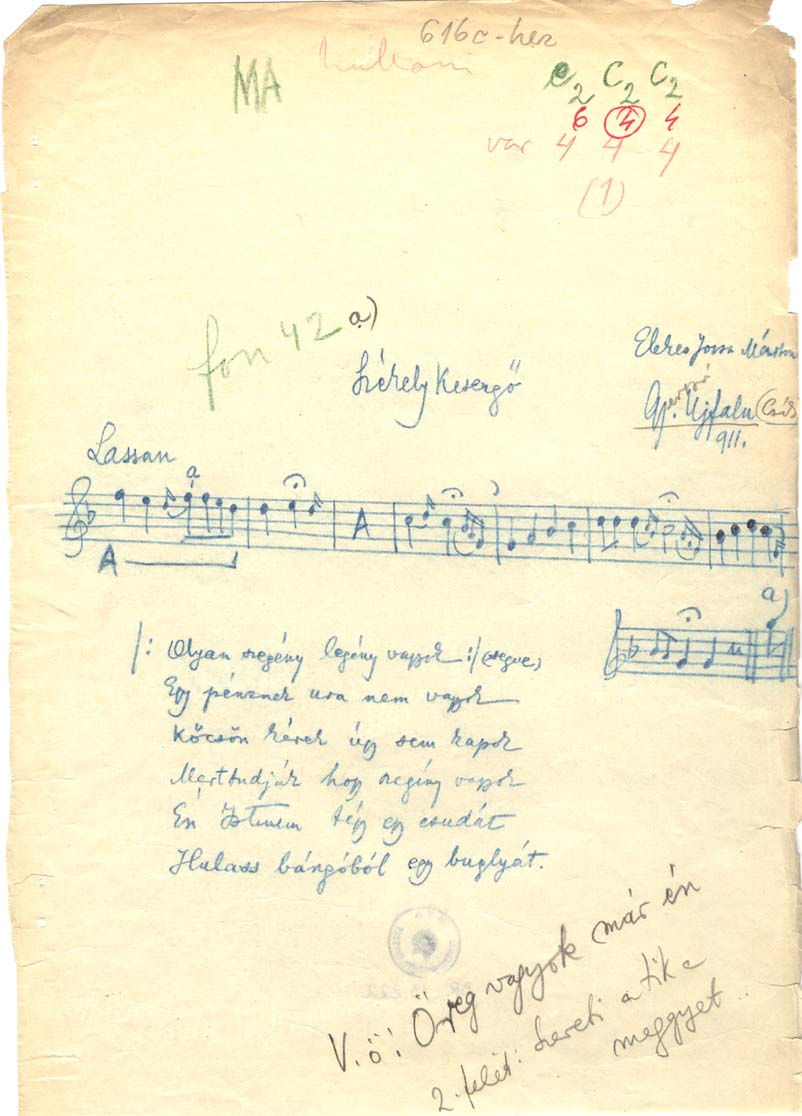 616c-hez
MA
e2 C2 C2
6 4 4
var 4 4 4
(1)
fon 42 a)
Székely Kesergő
Elekes Józsa Márton
Gyergyó Újfalu (Csík)
911.
Lassan
a
A
A
a
|: Olyan szegény legény vagyok :| (végve)
Egy pénznek ura nem vagyok
Köcsön kérek úgy sem kapok
Mert tudják hogy szegény vagyok
Én Istenem tégy egy csudát
Hulass bángóból egy buglyát.
V.ö: Öreg vagyok már én
2. felét: Szereti a tik a
meggyet..